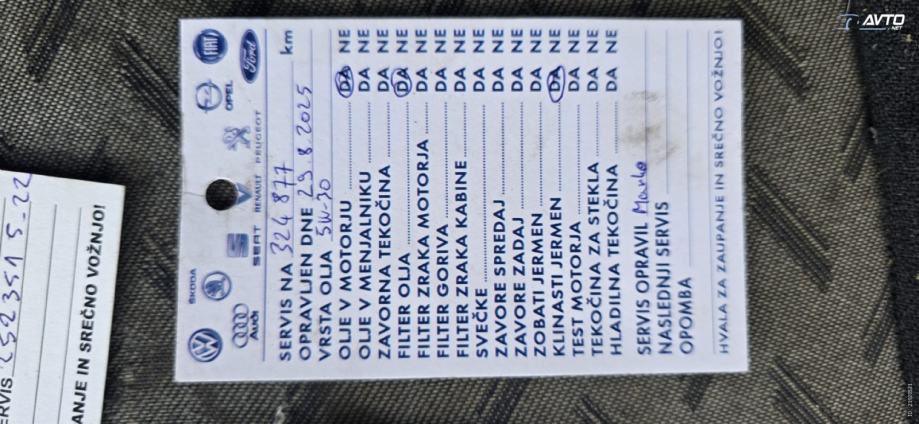 AVTO
.NET
FIAT
Ford
OPEL
PEUGEOT
RENAULT
SEAT
ŠKODA
Audi
SERVIS NA 324 877 km
OPRAVLJEN DNE 29. 8. 2025
VRSTA OLJA 5W-30
OLJE V MOTORJU DA NE
OLJE V MENJALNIKU DA NE
ZAVORNA TEKOČINA DA NE
FILTER OLJA DA NE
FILTER ZRAKA MOTORJA DA NE
FILTER GORIVA DA NE
FILTER ZRAKA KABINE DA NE
SVEČKE DA NE
ZAVORE SPREDAJ DA NE
ZAVORE ZADAJ DA NE
ZOBATI JERMEN DA NE
KLINASTI JERMEN DA NE
TEST MOTORJA DA NE
TEKOČINA ZA STEKLA DA NE
HLADILNA TEKOČINA DA NE
SERVIS OPRAVIL Marko
NASLEDNJI SERVIS
OPOMBA
HVALA ZA ZAUPANJE IN SREČNO VOŽNJO!
ANJE IN SREČNO VOŽNJO!